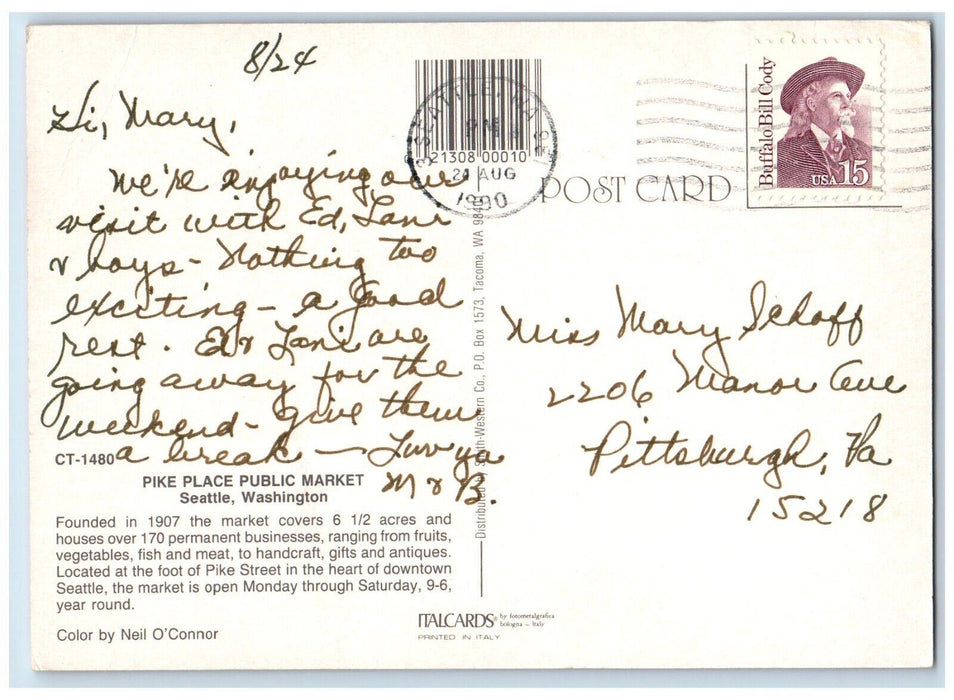 8/24
Hi, Mary,
We're enjoying our
visit with Ed, Lani
& boys - Nothing too
exciting - a good
rest. Ed & Lani are
going away for the
weekend - give them
a break — Luv ya
M & B.
CT-1480
PIKE PLACE PUBLIC MARKET
Seattle, Washington
Founded in 1907 the market covers 6 1/2 acres and
houses over 170 permanent businesses, ranging from fruits,
vegetables, fish and meat, to handcraft, gifts and antiques.
Located at the foot of Pike Street in the heart of downtown
Seattle, the market is open Monday through Saturday, 9-6,
year round.
Color by Neil O'Connor
SEATTLE, WA
PM
21308 00010
24 AUG
1990
POST CARD
Distributed by Smith-Western Co., P.O. Box 1573, Tacoma, WA
ITALCARDS® by fotometalgrafica
bologna - Italy
PRINTED IN ITALY
Buffalo Bill Cody
USA 15
Miss Mary Schoff
2206 Manor Ave
Pittsburgh, Pa
15218